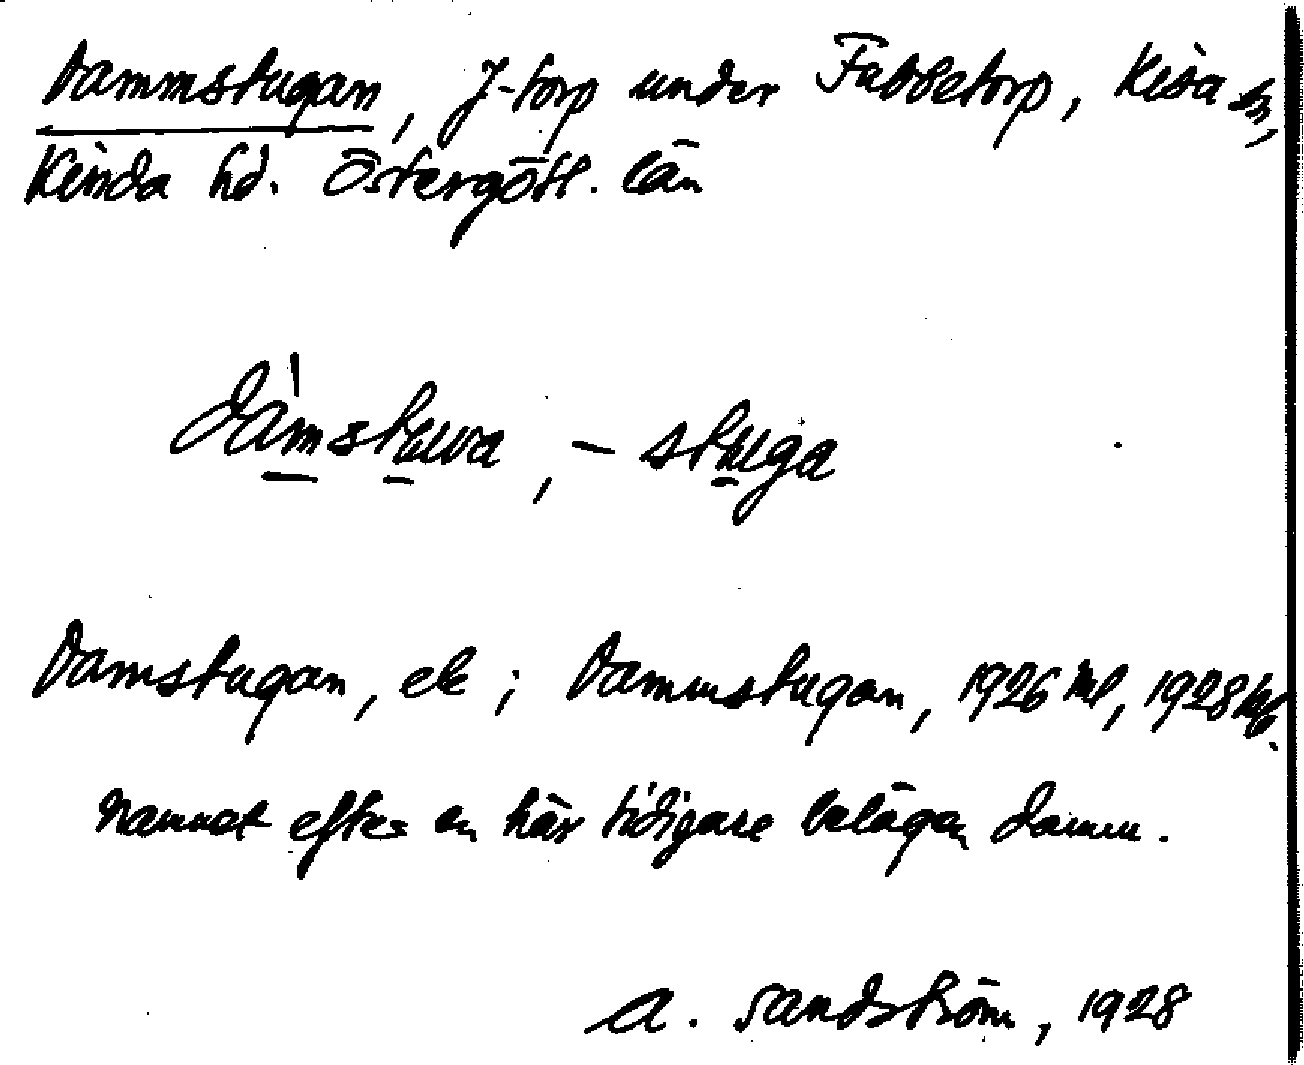 Dammstugan, J-torp under Fabbetorp, Kisa sn,
Kinda hd. Östergötl. län
dàmstuva, – stuga
Damstugan, ek; Dammstugan, 1926 ml, 1928
Namnet efter en här tidigare belägen damm.
A. Sandström, 1928